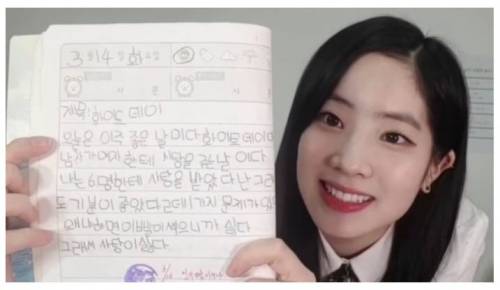 3월 14일 화요일
제목: 화이트 데이
오늘은 아주 좋은 날이다 화이트 데이
남자가 여자 한테 사탕을 주는 날 이다
나는 6명한테 사탕을 받았다 난 그래
도 기분이 좋았다 근데 가지 문제가 있
왜냐하면 이빨이 썩으니가 싫다
그래서 사탕이 싫다